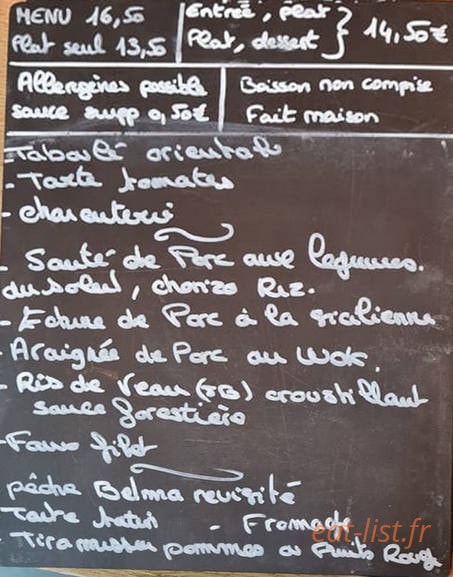 MENU 16,50
Plat seul 13,50
Entrée, plat
Plat, dessert
14,50€
Allergènes possible
sauce supp 0,50€
Boisson non compise
Fait maison
- Taboulé oriental
- Tarte tomates
- charcuterie
- Sauté de Porc aux legumes.
du soleil, chorizo Riz.
- Echine de Porc à la sicilienne
- Araignée de Porc au Wok.
- Ris de Veau (FB) croustillant
sauce forestière
- Faux filet
pêche Belma revisité
Tarte - Fromage
- Tiramissu pommes ou Fruits Rouge
eat-list.fr